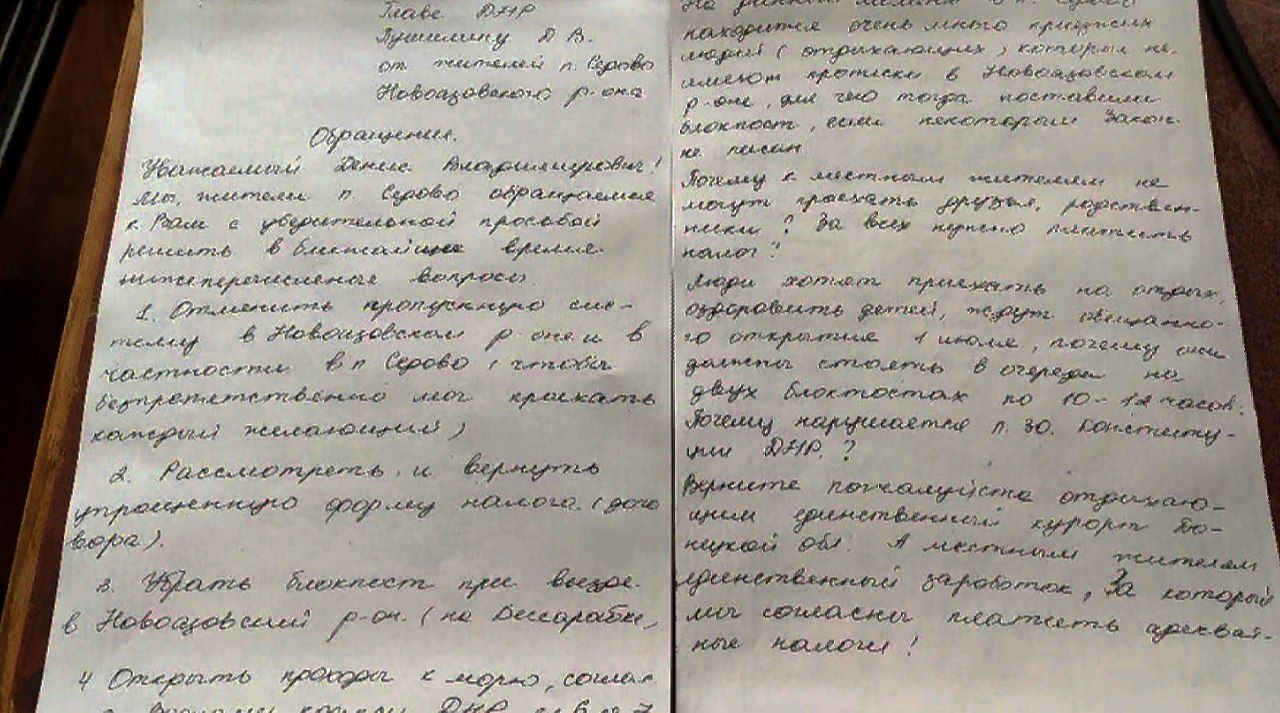 Главе ДНР
Пушилину Д В.
от жителей п. Седово
Новоазовского р-она
Обращение.
Уважаемый Денис Владимирович!
Мы, жители п. Седово обращаемся
к Вам с убедительной просьбой
решить в ближайшее время
нижеперечисленые вопросы
1. Отменить пропускную сис-
тему в Новоазовском р-оне и в
частности в п Седово (чтобы
безпрепятственно мог приехать
каждый желающий)
2. Рассмотреть и вернуть
упрощенную форму налога. (дого
вора).
3. Убрать блокпост при въезде
в Новоазовский р-он. (на Бессарабке,
4 Открыть проходы к морю, соглас.
ДНР
На данный п. Седово
находится очень много приезжих
людей (отдыхающих) которые не
имеют прописки в Новоазовском
р-оне, для чего тогда поставили
блокпост, если некоторым закон
не писан.
Почему к местным жителям не
могут приехать друзья, родствен-
ники? За всех нужно платить
налог?
Люди хотят приехать на отдых,
оздоровить детей, ждут обещанно-
го открытия 1 июля, почему они
должны стоять в очереди на
двух блокпостах по 10-12 часов.
Почему нарушается п. 30. Конститу-
ции ДНР.?
Верните пожалуйста отдыхаю-
щим единственный курорт До-
нецкой обл. А местным жителям
единственный заработок, За который
мы согласны платить адекват-
ные налоги!